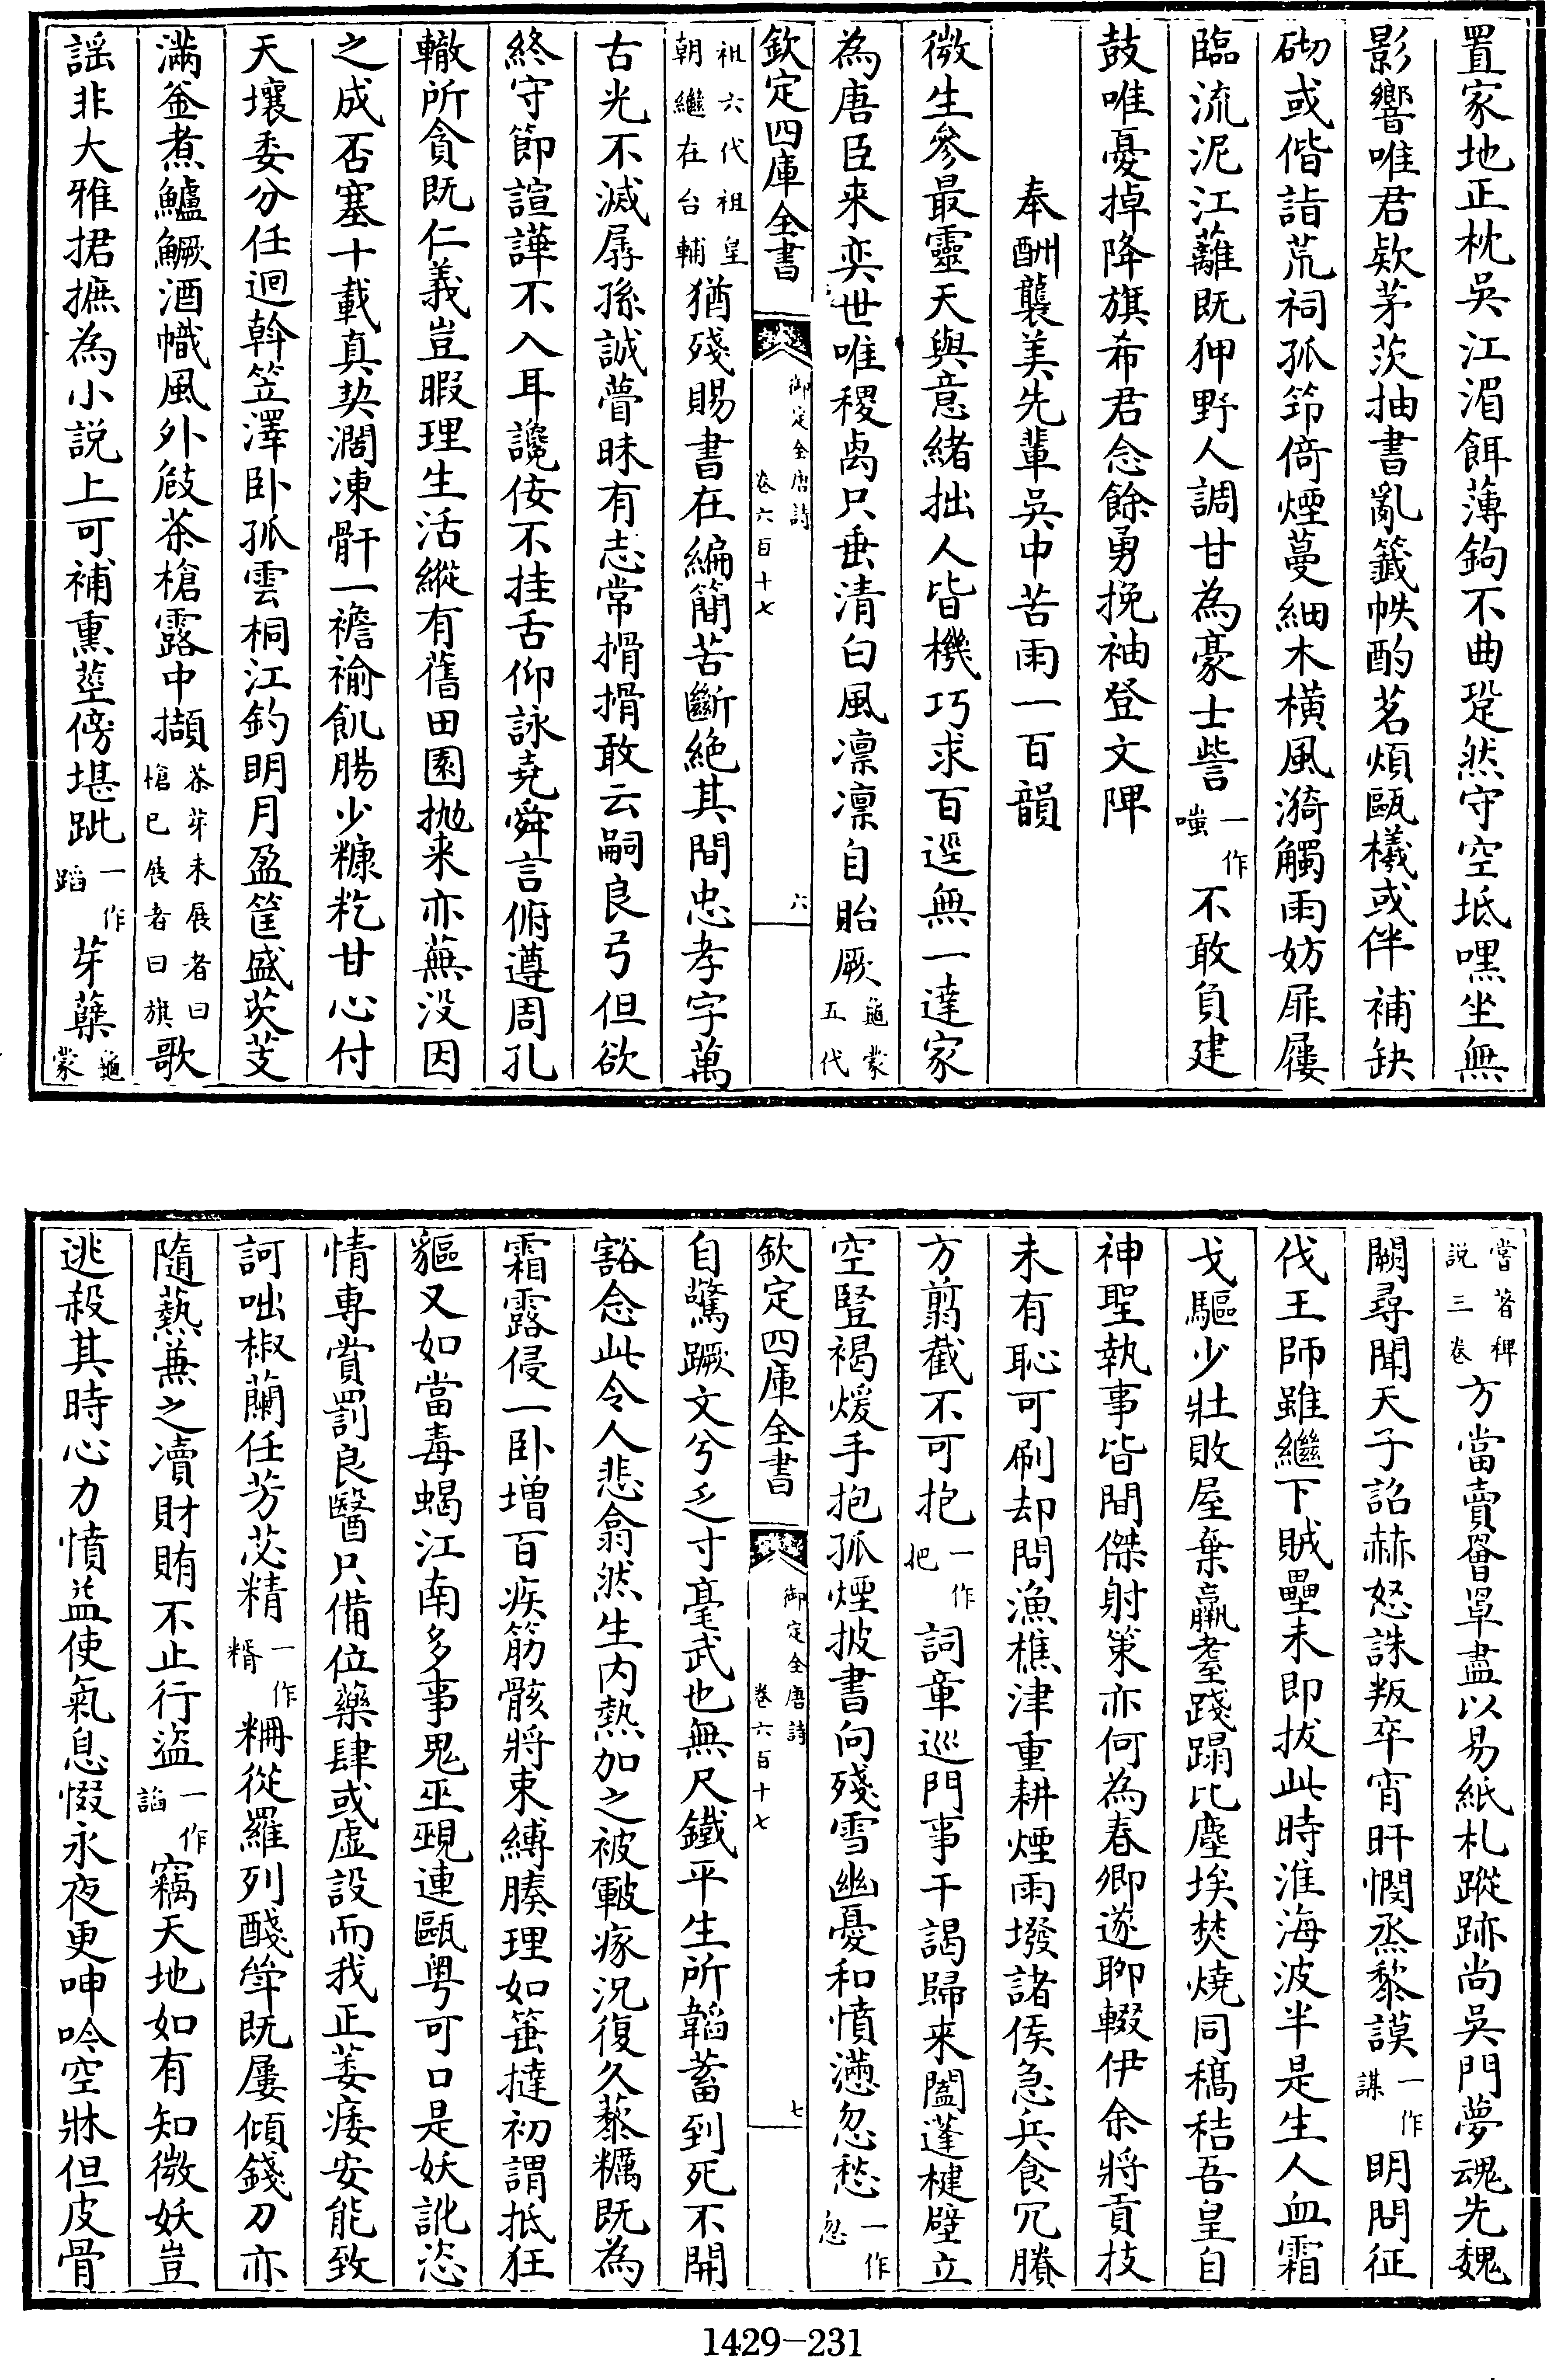 置家地正枕吳江湄餌薄鉤不曲䟫然守空坻嘿坐無
影響唯君欵茅茨抽書亂籤帙酌茗煩甌檥或伴補缺
砌或偕詣荒祠孤笻倚煙蔓細木橫風漪觸雨妨扉屨
臨流泥江蘺既狎野人調甘為豪士訾一作嗤不敢負建
鼓唯憂掉降旗希君念餘勇挽袖登文陴
奉酬襲美先輩吳中苦雨一百韻
微生參最靈天與意緒拙人皆機巧求百逕無一達家
為唐臣來奕世唯稷卨只垂清白風凛凛自貽厥龜蒙五代
欽定四庫全書 御定全唐詩 卷六百十七 六
祖六代祖皇朝繼在台輔猶殘賜書在編簡苦斷絕其間忠孝字萬
古光不滅孱孫誠瞢昧有志常搰搰敢云嗣良弓但欲
終守節諠譁不入耳讒佞不挂舌仰詠堯舜言俯遵周孔
轍所貪既仁義豈暇理生活縱有舊田園抛来亦蕪沒因
之成否塞十載真契濶凍骭一襜褕飢腸少糠籺甘心付
天壤委分任迴斡笠澤臥孤雲桐江釣明月盈筐盛芡芰
滿釜煮鱸鱖酒幟風外㩻茶槍露中擷茶芽未展者曰槍已展者曰旗歌
謡非大雅捃摭為小説上可補熏莖傍堪跐一作蹈芽蘖龜蒙
嘗著稗説三卷方當賣罾罩盡以易紙札蹤跡尚吳門夢魂先魏
闕尋聞天子詔赫怒誅叛卒宵旰憫烝黎謨一作謀明問征
伐王師雖繼下賊壘未即拔此時淮海波半是生人血霜
戈驅少壯敗屋棄羸耋踐蹋比塵埃焚燒同稿秸吾皇自
神聖執事皆間傑射策亦何為春卿遂聊輟伊余將貢技
未有恥可刷却問漁樵津重耕煙雨墢諸侯急兵食冗賸
方翦截不可抱一作把詞章巡門事干謁歸来闔蓬楗壁立
空豎褐煖手抱孤煙披書向殘雪幽憂和憤懣忽愁一作忽
欽定四庫全書 御定全唐詩 卷六百十七 七
自驚蹶文兮乏寸毫武也無尺鐵平生所韜蓄到死不開
豁念此令人悲翕然生内熱加之被皸瘃況復久藜糲既為
霜露侵一臥增百疾筋骸將束縛腠理如箠撻初謂抵狂
貙又如當毒蝎江南多事鬼巫覡連甌粤可口是妖訛恣
情專賞罰良醫只備位藥肆或虛設而我正萎痿安能致
訶咄椒蘭任芳苾精一作糈粣從羅列醆斝既屢傾錢刀亦
隨爇兼之瀆財賄不止行盜一作謟竊天地如有知微妖豈
逃殺其時心力憤益使氣息惙永夜更呻吟空牀但皮骨
1429-231